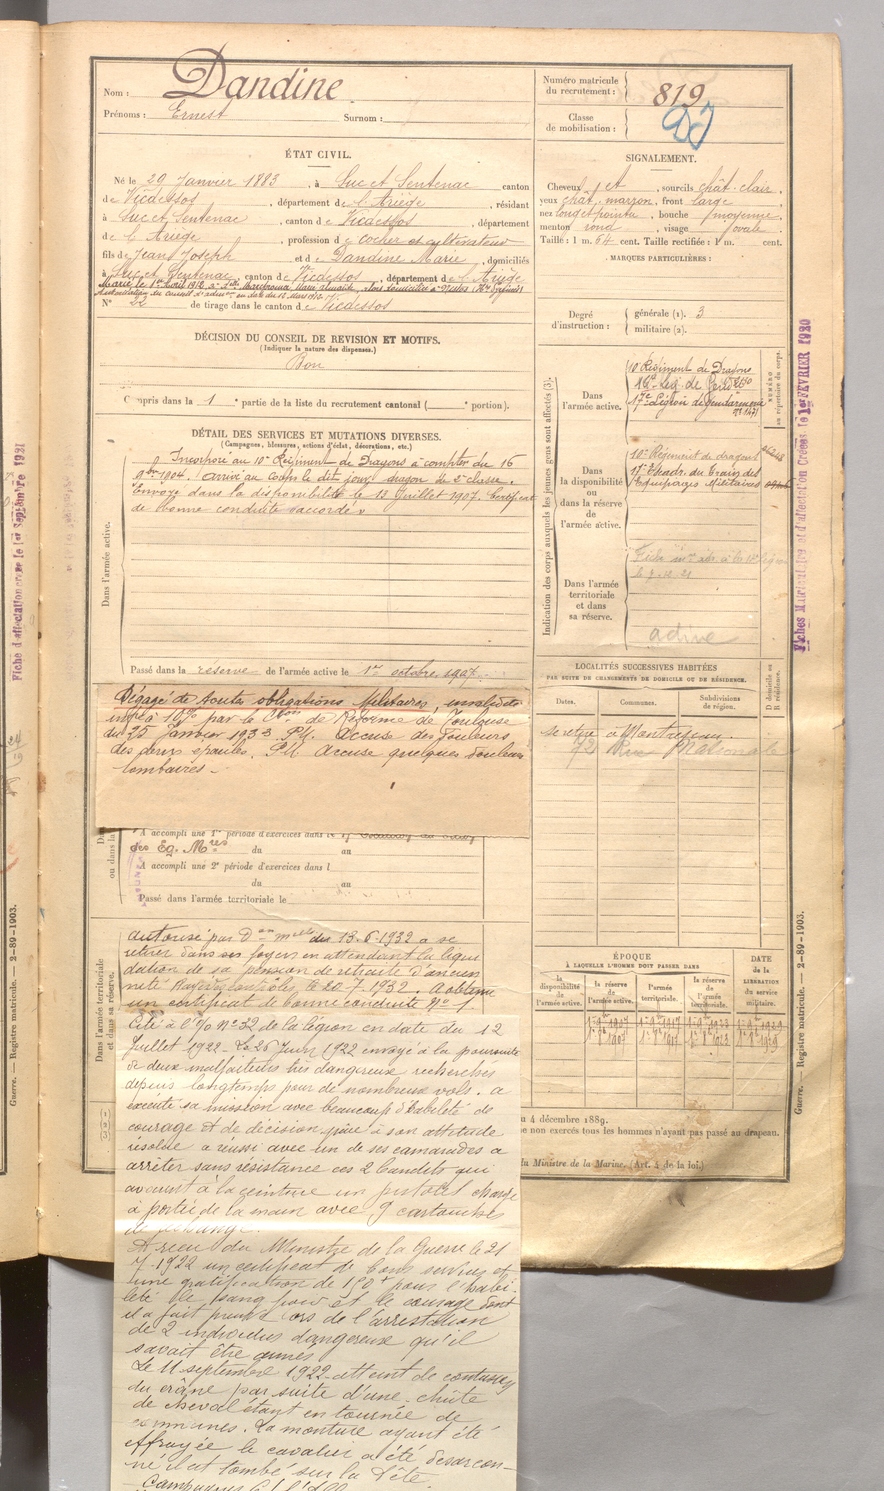 Nom : Dandine
Prénoms : Ernest Surnom :
Numéro matricule
du recrutement : 819
Classe
de mobilisation :
ÉTAT CIVIL.
Né le 29 Janvier 1883, à Suc et Sentenac canton
de Vicdessos, département de l'Ariège, résidant
à Suc et Sentenac, canton de Vicdessos, département
de l'Ariège, profession de cocher et cultivateur
fils de Jean Joseph et de Dandine Marie, domiciliés
à Suc et Sentenac, canton de Vicdessos, département de l'Ariège
Marié le 1er Avril 1912 à
N° 22 de tirage dans le canton de Vicdessos
SIGNALEMENT.
Cheveux et, sourcils chât-clair,
yeux chât. marron, front large
nez long et pointu, bouche moyenne,
menton rond, visage ovale.
Taille : 1 m. 64 cent. Taille rectifiée : 1 m. cent.
MARQUES PARTICULIÈRES :
Degré
d'instruction :
générale (1). 3
militaire (2).
DÉCISION DU CONSEIL DE REVISION ET MOTIFS.
(Indiquer la nature des dispenses.)
Bon
Compris dans la 1 e partie de la liste du recrutement cantonal ( e portion).
DÉTAIL DES SERVICES ET MUTATIONS DIVERSES.
(Campagnes, blessures, actions d'éclat, décorations, etc.)
Dans l'armée active.
Incorporé au 10e Régiment de Dragons à compter du 16
9bre 1904. Arrivé au corps le dit jour dragon de 2e classe.
Envoyé dans la disponibilité le 12 Juillet 1907. Certificat
de bonne conduite accordé.
Passé dans la réserve de l'armée active le 1er octobre 1907.
Indication des corps auxquels les jeunes gens sont affectés (3).
NUMÉRO
au répertoire du corps.
Dans
l'armée active.
10e Régiment de Dragons
17e Légion de Gendarmerie
Dans
la disponibilité
ou
dans la réserve
de
l'armée active.
10e Régiment de dragons
17e Escadr. du Train des
Equipages Militaires
Dans l'armée
territoriale
et dans
sa réserve.
active
LOCALITÉS SUCCESSIVES HABITÉES
PAR SUITE DE CHANGEMENTS DE DOMICILE OU DE RÉSIDENCE.
D domicile ou
R résidence.
Dates. Communes. Subdivisions
de région.
se retire à
72 Rue Nationale
Dégagé de toutes obligations Militaires, invalidité
infre à 10% par la Con de Réforme de Toulouse
du 25 Janvier 1933 P.M. Accuse des douleurs
des deux épaules. P.M. Accuse quelques douleurs
lombaires.
A accompli une 1re période d'exercices dans le
des Eq. Mres du au
A accompli une 2e période d'exercices dans l
du au
Passé dans l'armée territoriale le
Dans l'armée territoriale
et dans sa réserve.
Autorisé par Don melle du 13.6.1932 à se
retirer dans ses foyers en attendant la liqui
dation de sa pension de retraite d'ancien
neté Rayé des contrôles le 20.7.1932. A obtenu
un certificat de bonne conduite N° 1
Cité à l'Go N° 32 de la légion en date du 12
Juillet 1922. Le 26 Juin 1922 envoyé à la poursuite
de deux malfaiteurs très dangereux recherchés
depuis longtemps pour de nombreux vols. a
exécuté sa mission avec beaucoup d'habileté de
courage et de décision grâce à son attitude
résolue a réussi avec un de ses camarades à
arrêter sans résistance ces 2 bandits qui
avaient à la ceinture un pistolet chargé
à portée de la main avec 9 cartouches
de rechange.
A reçu du Ministre de la Guerre le 21
7-1922 un certificat de bons services et
une gratification de 150f pour l'habi
leté le sang froid et le courage dont
il a fait preuve lors de l'arrestation
de 2 individus dangereux qu'il
savait être armés
Le 11 septembre 1922 atteint de contusion
du crâne par suite d'une chûte
de cheval étant en tournée de
communes. La monture ayant été
effrayée le cavalier a été désarçon-
né il est tombé sur la tête.
ÉPOQUE
À LAQUELLE L'HOMME DOIT PASSER DANS
DATE
de la
LIBÉRATION
du service
militaire.
la
disponibilité
de
l'armée active.
la réserve
de
l'armée active.
l'armée
territoriale.
la réserve
de
l'armée
territoriale.
du 4 décembre 1889.
ne non exercés tous les hommes n'ayant pas passé au drapeau.
du Ministre de la Marine. (Art. 4 de la loi.)
Guerre. — Registre matricule. — 2-89-1903.
Guerre. — Registre matricule. — 2-89-1903.
Fiches Matriculaire et d'affectation Créées le 1er FÉVRIER 1920
Fiche d'affectation créée le 1er Septembre 1921